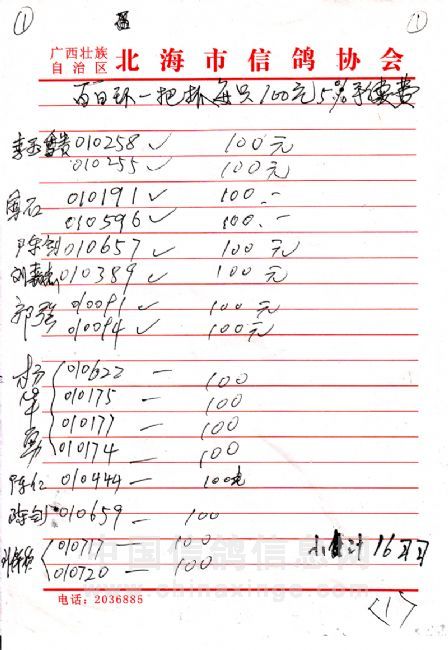 ① ①
广西壮族
自治区 北海市信鸽协会
百日环一把抓每只100元5%手续费
010258 ✓ 100元
010255 ✓ 100元
010191 ✓ 100.-
010596 ✓ 100.-
陈剑 010657 ✓ 100元
010389 ✓ 100元
郭强 010091 ✓ 100元
010094 ✓ 100元
杨 010622 — 100
010175 — 100
010177 — 100
勇 010174 — 100
陈仁 010444 — 100元
陈剑 010659 — 100
010717 — 100 小计16羽
010720 — 100
中国信鸽信息网
www.chinaxinge.com
电话：2036885
〈1〉